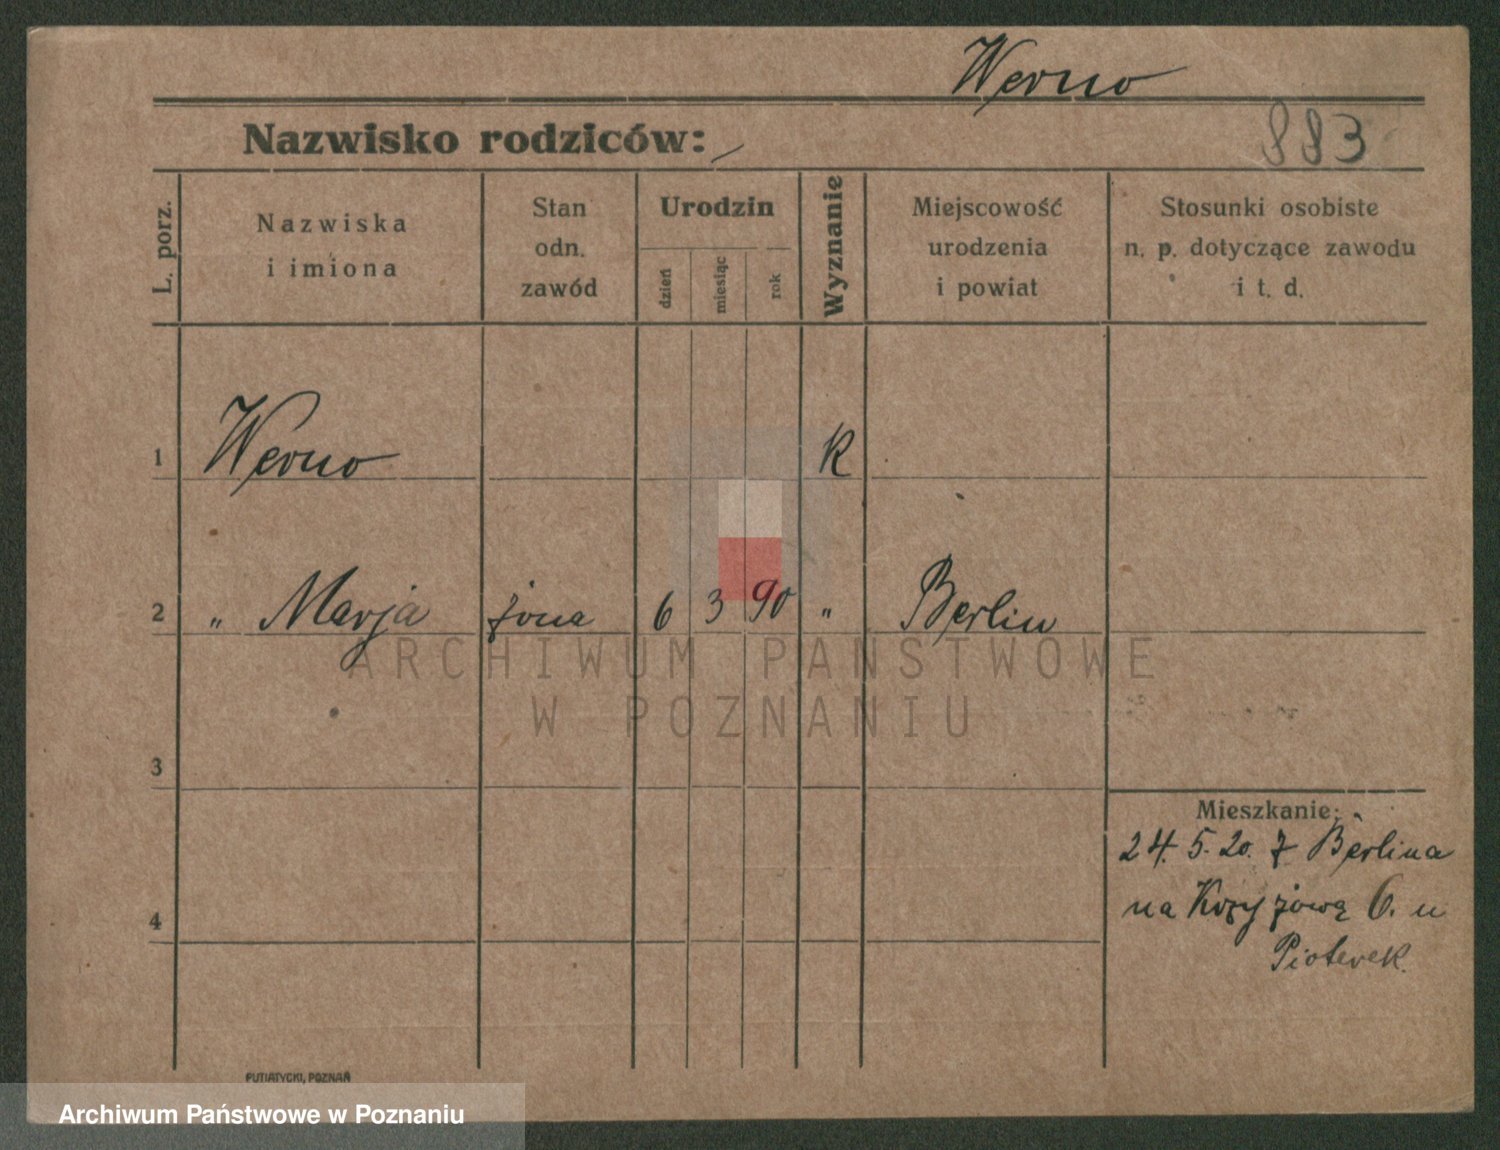 Werno
Nazwisko rodziców:
883
L. porz.
Nazwiska
i imiona
Stan
odn.
zawód
Urodzin
dzień
miesiąc
rok
Wyznanie
Miejscowość
urodzenia
i powiat
Stosunki osobiste
n. p. dotyczące zawodu
i t. d.
1 Werno K
2 " Marja żona 6 3 90 " Berlin
ARCHIWUM PAŃSTWOWE
W POZNANIU
3
Mieszkanie:
24. 5. 20. z Berlina
na Krzyżową 6. u
Pioterek.
4
PUTIATYCKI, POZNAŃ
Archiwum Państwowe w Poznaniu